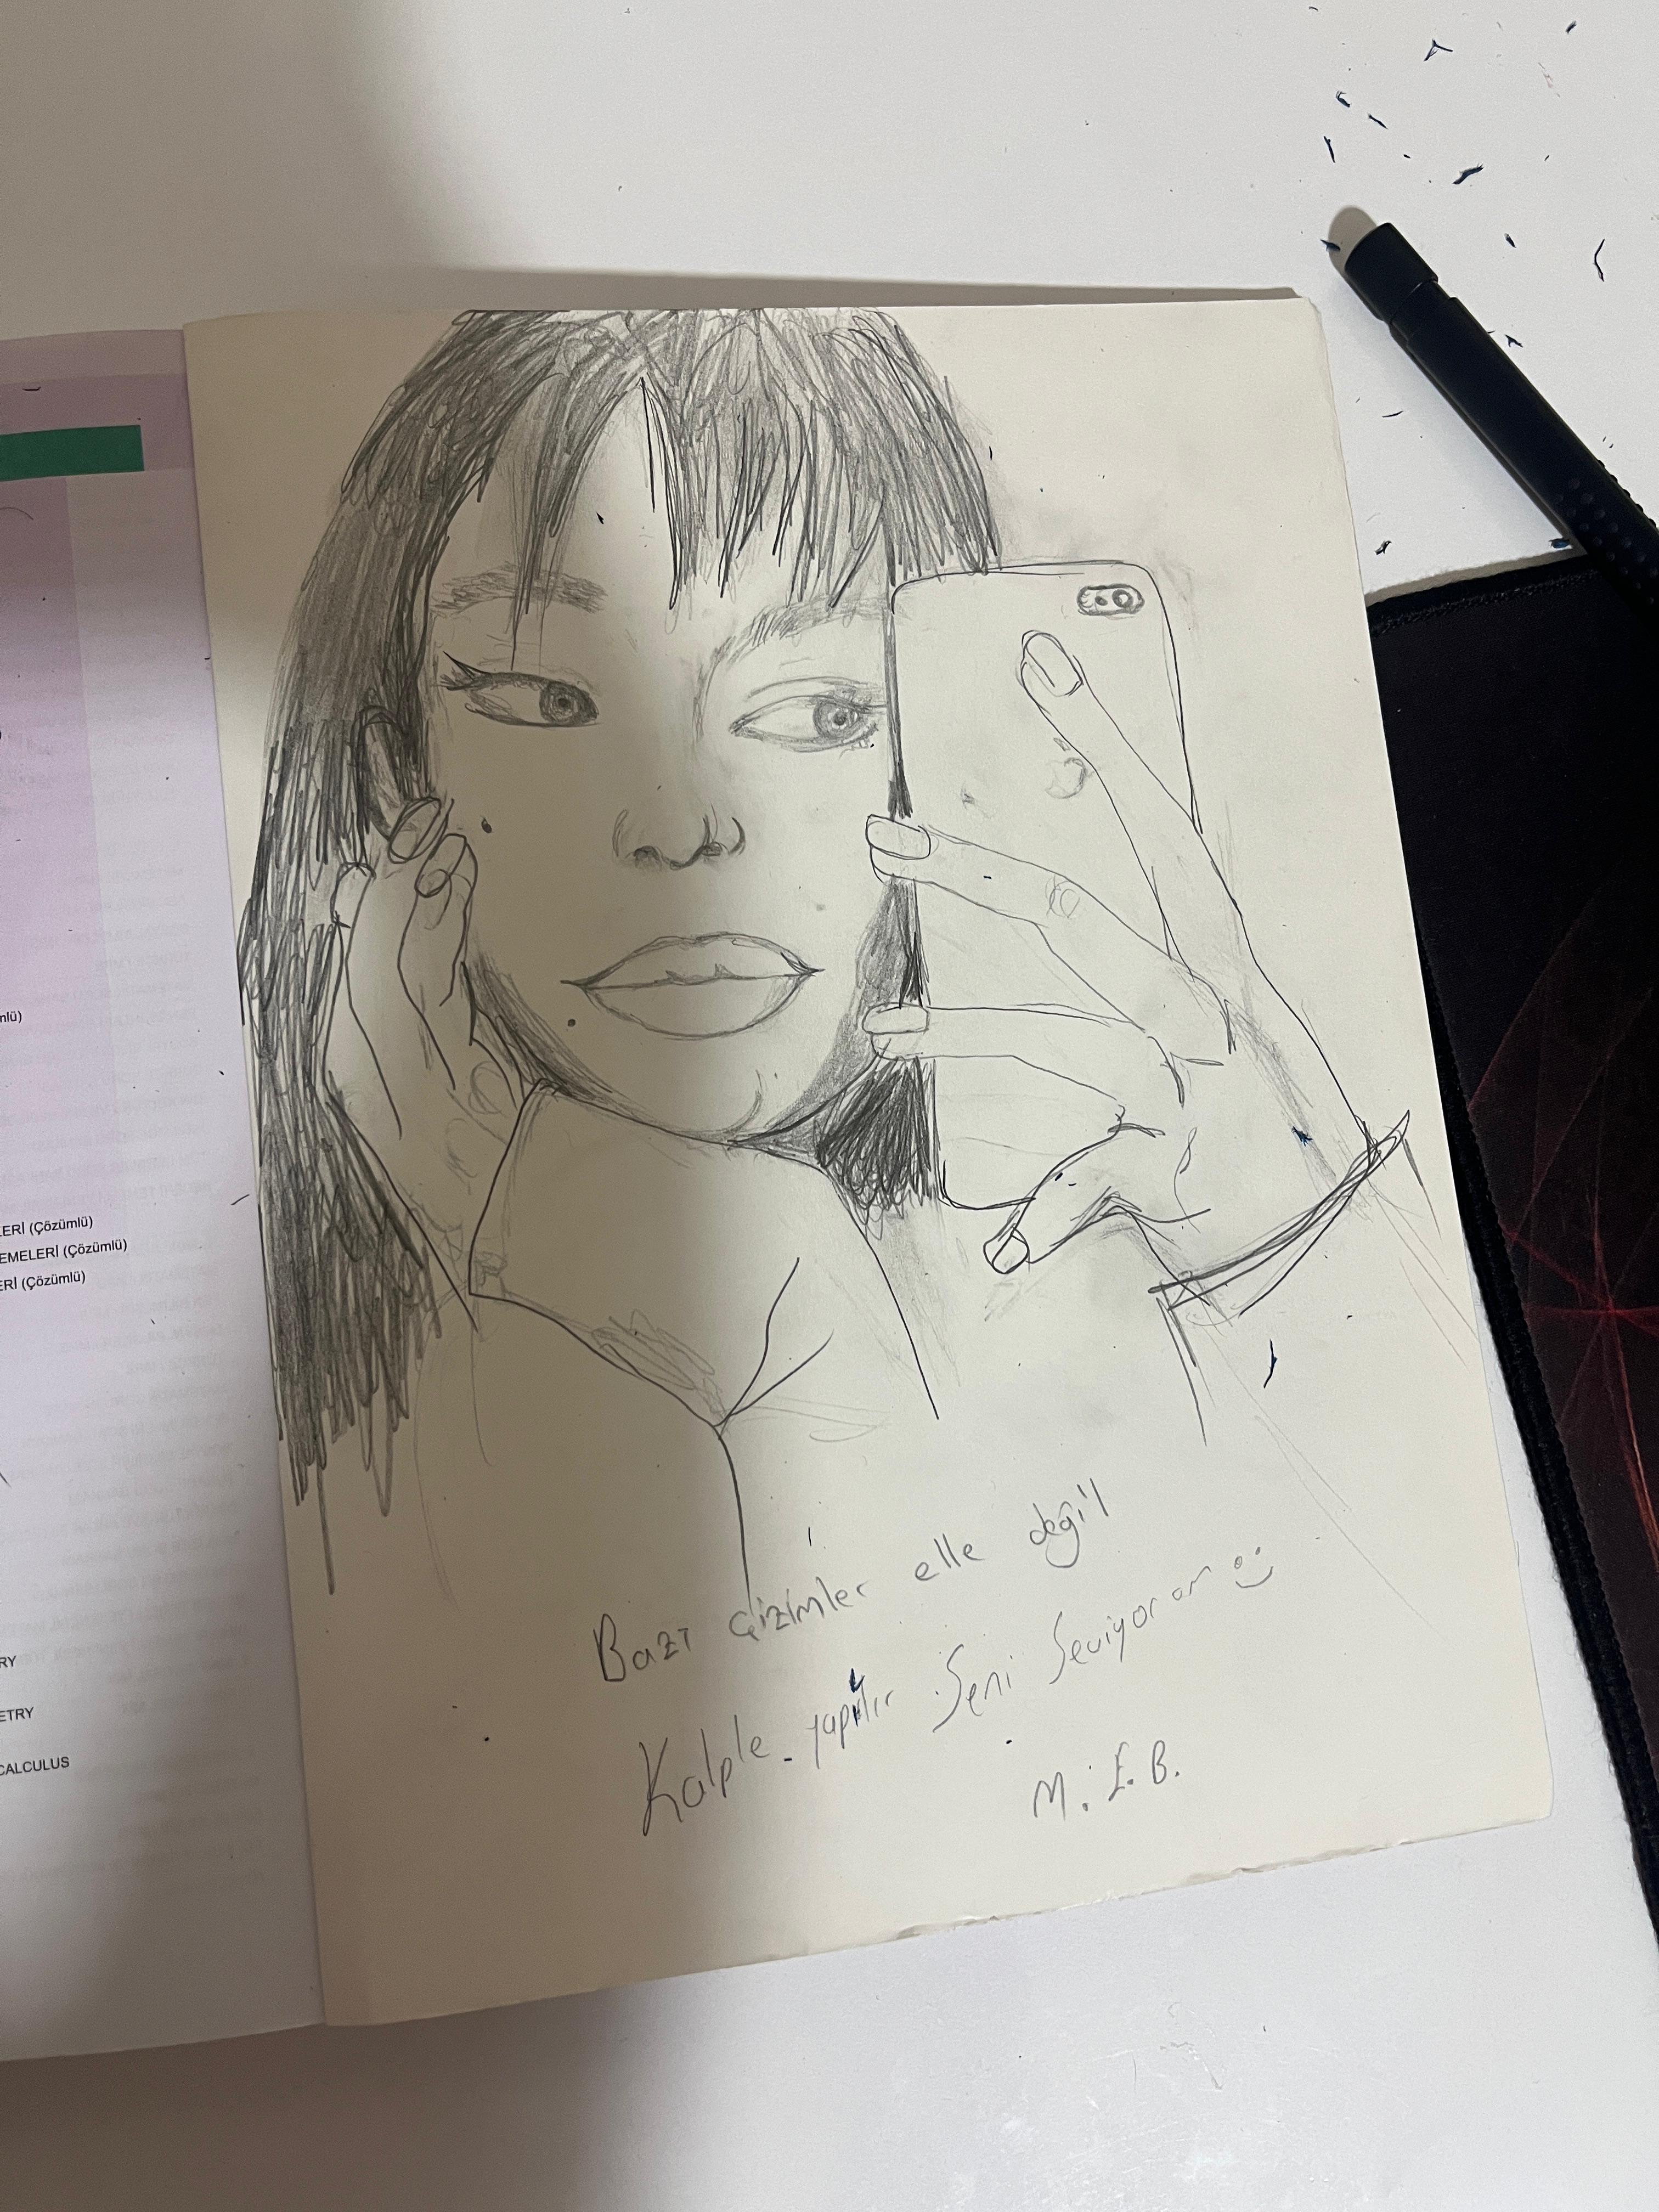 mlü)
ERİ (Çözümlü)
EMELERİ (Çözümlü)
ERİ (Çözümlü)
RY
ETRY
CALCULUS
Bazı çizimler elle değil
Kalple yapılır Seni Seviyorum :)
M. E. B.